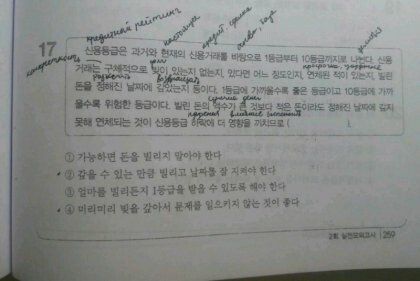 кредитный рейтинг
настоящее
кредит. сделка
17 신용등급은 과거와 현재의 신용거래를 바탕으로 1등급부터 10등급까지로 나뉜다. 신용
거래는 구체적으로 빚이 있는지 없는지, 있다면 어느 정도인지, 연체된 적이 있는지, 빌린
돈을 정해진 날짜에 갚았는지 등이다. 1등급에 가까울수록 좋은 등급이고 10등급에 가까
울수록 위험한 등급이다. 빌린 돈의 액수가 큰 것보다 적은 돈이라도 정해진 날짜에 갚지
못해 연체되는 것이 신용등급 하락에 더 영향을 끼치므로 ( ).
① 가능하면 돈을 빌리지 말아야 한다
② 갚을 수 있는 만큼 빌리고 날짜를 잘 지켜야 한다
③ 얼마를 빌리든지 1등급을 받을 수 있도록 해야 한다
④ 미리미리 빚을 갚아서 문제를 일으키지 않는 것이 좋다
2회 실전모의고사 259